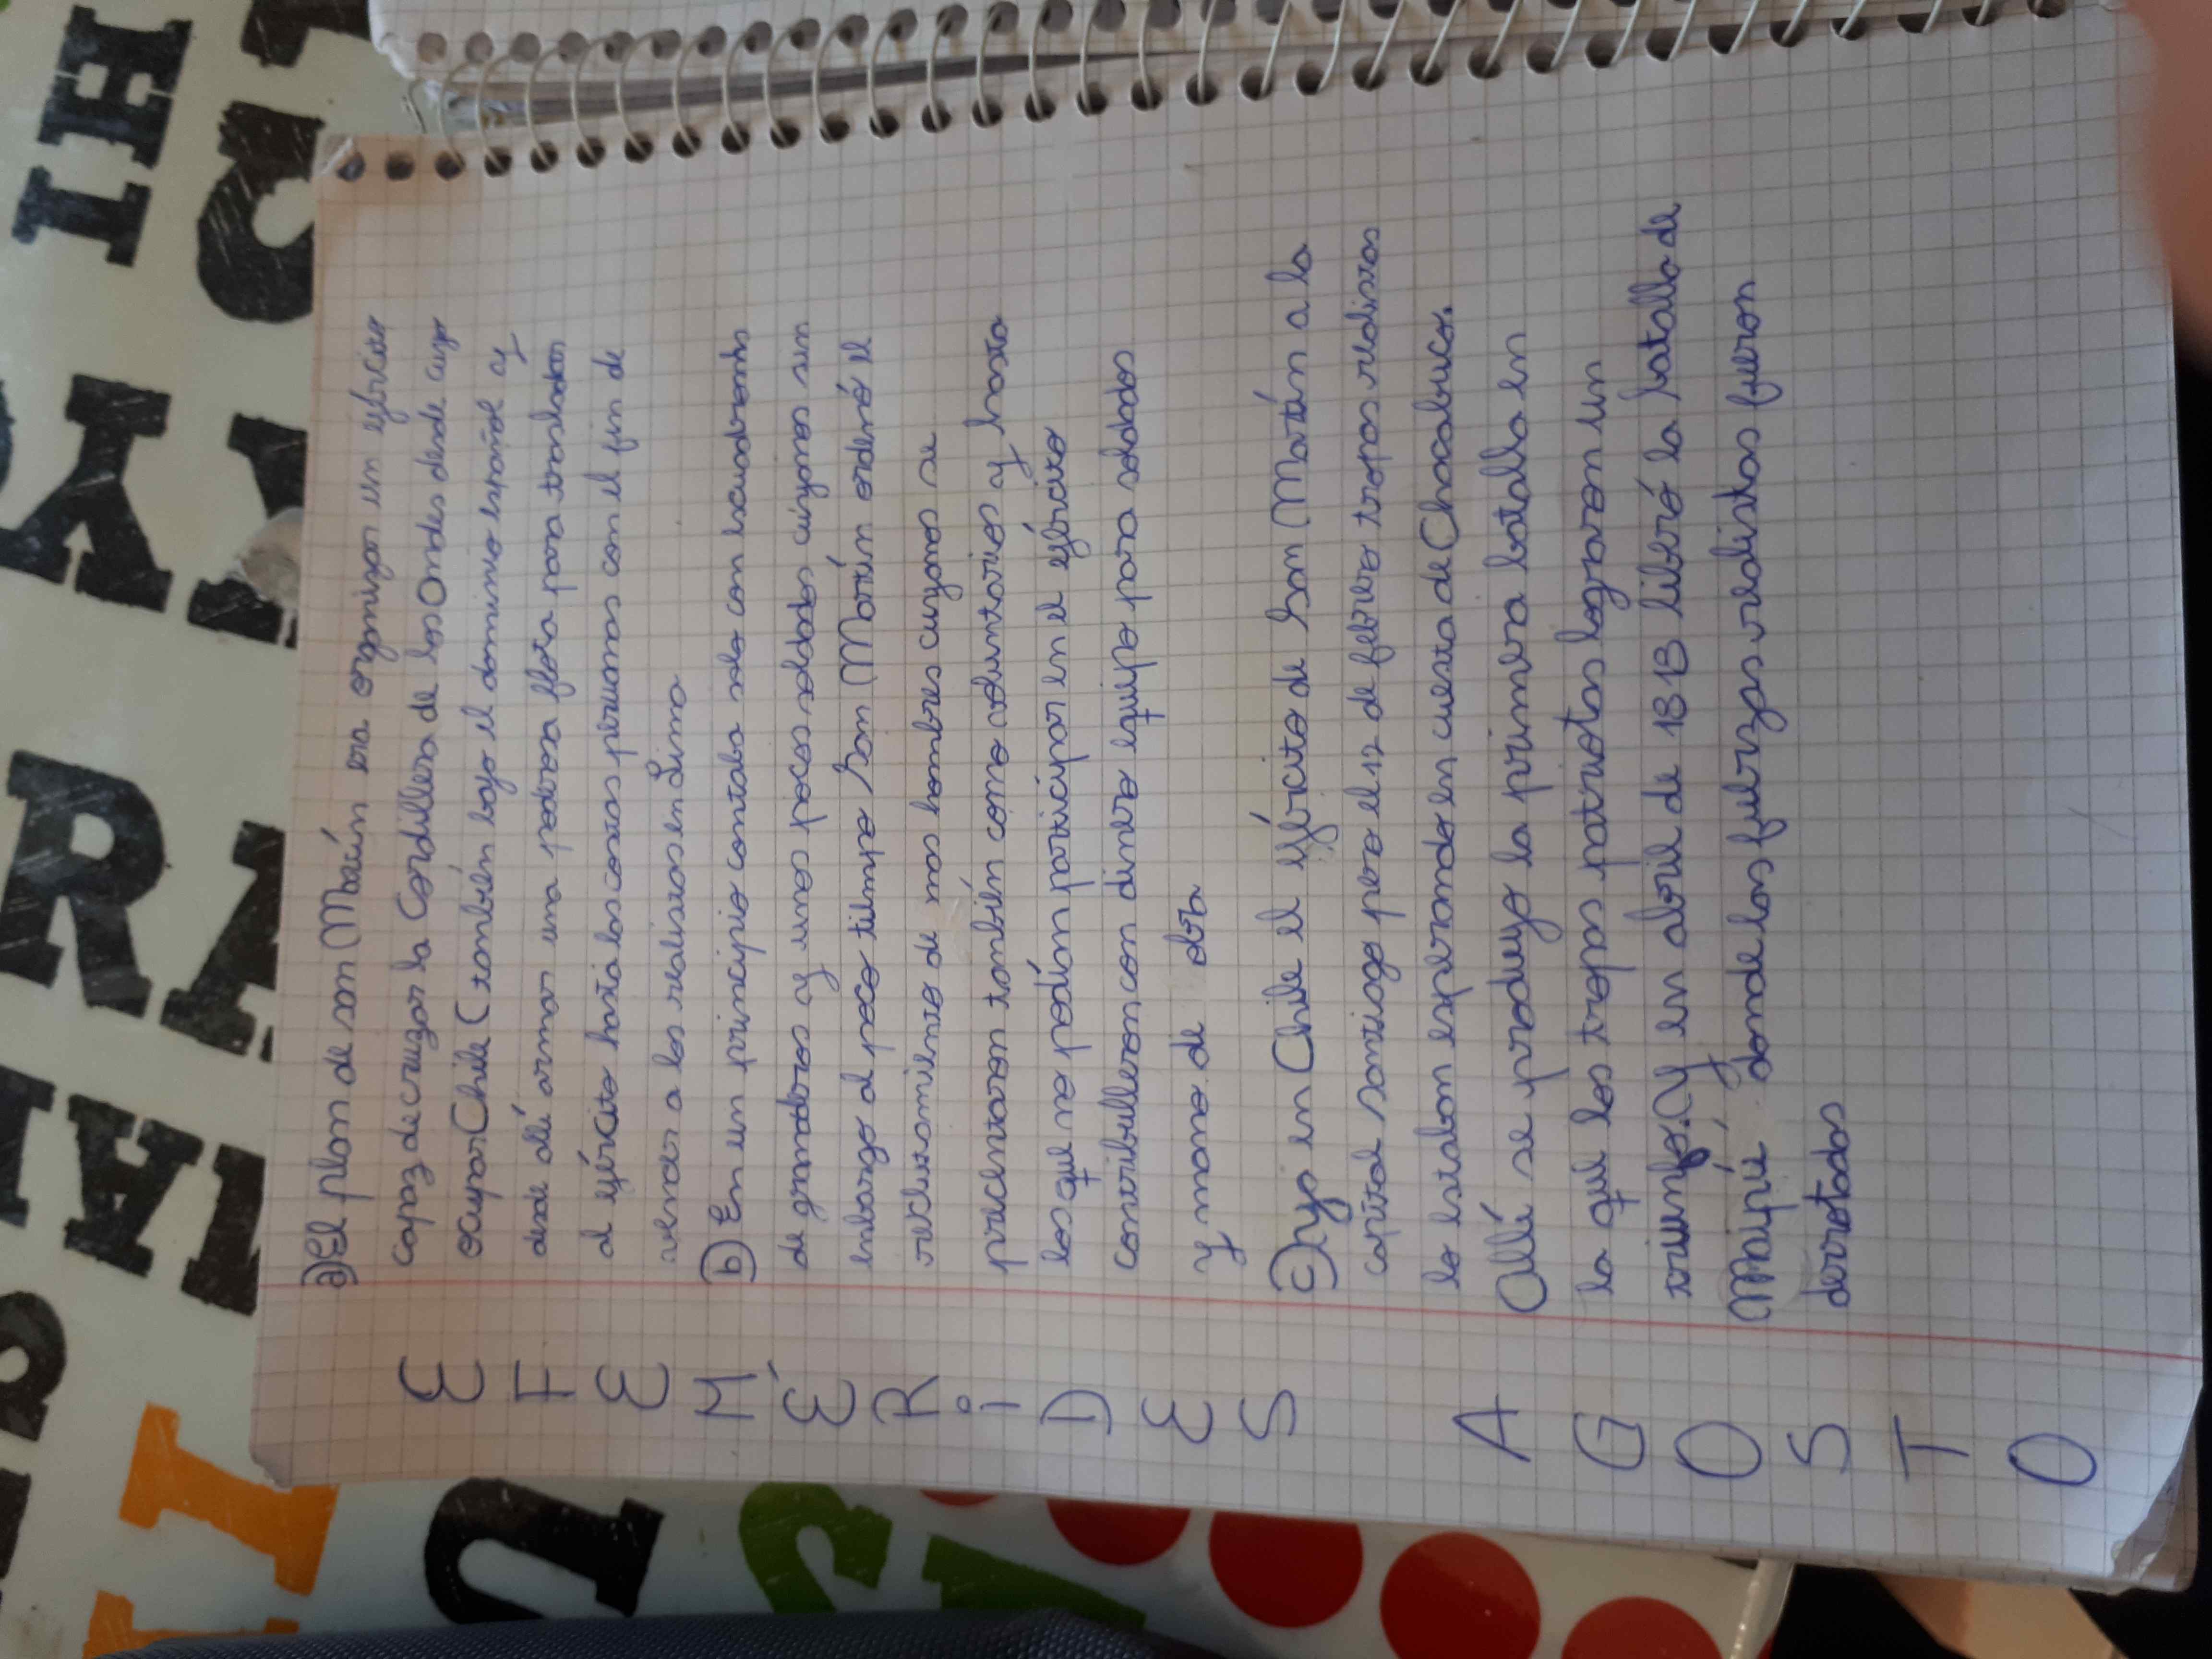 EFEMÉRiDES AGOSTO
a) El plan de san Martín era organizar un ejército
capaz de cruzar la Cordillera de los Andes desde cuyo
ocupar Chile (también bajo el dominio español y
desde allí armar una podrosa flota para trasladar
al ejército hasta las costas peruanas con el fin de
vencer a los realistas en Lima
b) En un principio contaba solo con escuadrones
de granaderos y unos pocos soldados cuyanos sin
embargo al poco tiempo San Martín ordenó el
reclutamiento de mas hombres cuyanos se
presentaron también como voluntarios y hasta
los que no podían participar en el ejército
contribulleron con dinero equipo para soldados
y mano de obra
c) ya en Chile el ejército de San Martín a la
capital santiago pero el 12 de febrero tropas realistas
lo estaban esperando en cuesta de Chacabuco.
Allí se produjo la primera batalla en
la que los tropas patriotas lograron un
triunfo. Y en abril de 1818 libró la batalla de
Maipú donde las fuerzas realistas fueron
derrotadas